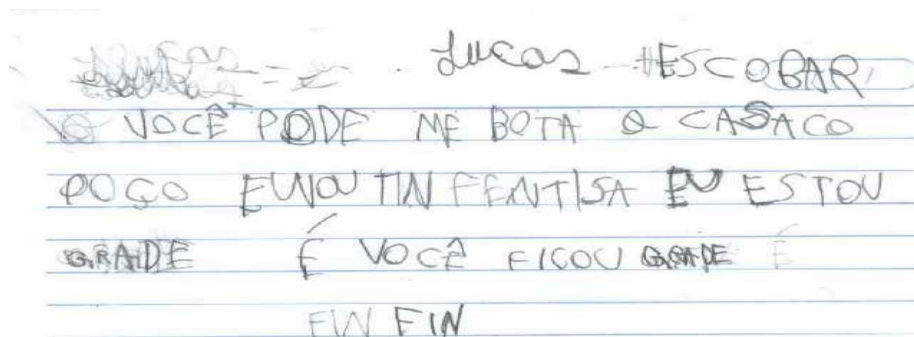 Lucas ESCOBAR
O VOCÊ PODE ME BOTA O CASACO
POÇO EUNOU TIN FENTISA EU ESTOU
GRADE É VOCÊ FICOU GRADE É
FIN FIN